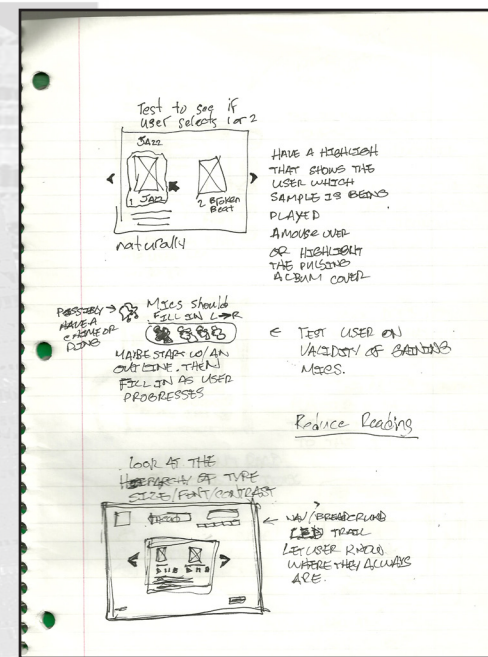 Test to see if
user selects 1 or 2
JAZZ
1 JAZZ
2 Broken
Beat
naturally
HAVE A HIGHLIGH
THAT SHOWS THE
USER WHICH
SAMPLE IS BEING
PLAYED
A MOUSE OVER
OR HIGHLIGHT
THE PULSING
ALBUM COVER
POSSIBLY
HAVE A
CHIME OR
DING
Mics should
FILL IN L→R
MAYBE START W/ AN
OUTLINE. THEN
FILL IN AS USER
PROGRESSES
← TEST USER ON
VALIDITY OF GAINING
MICS.
Reduce Reading
LOOK AT THE
HIERARCHY OF TYPE
SIZE/FONT/CONTRAST
← NAV/BREADCRUMB
TRAIL
LET USER KNOW
WHERE THEY ALWAYS
ARE.